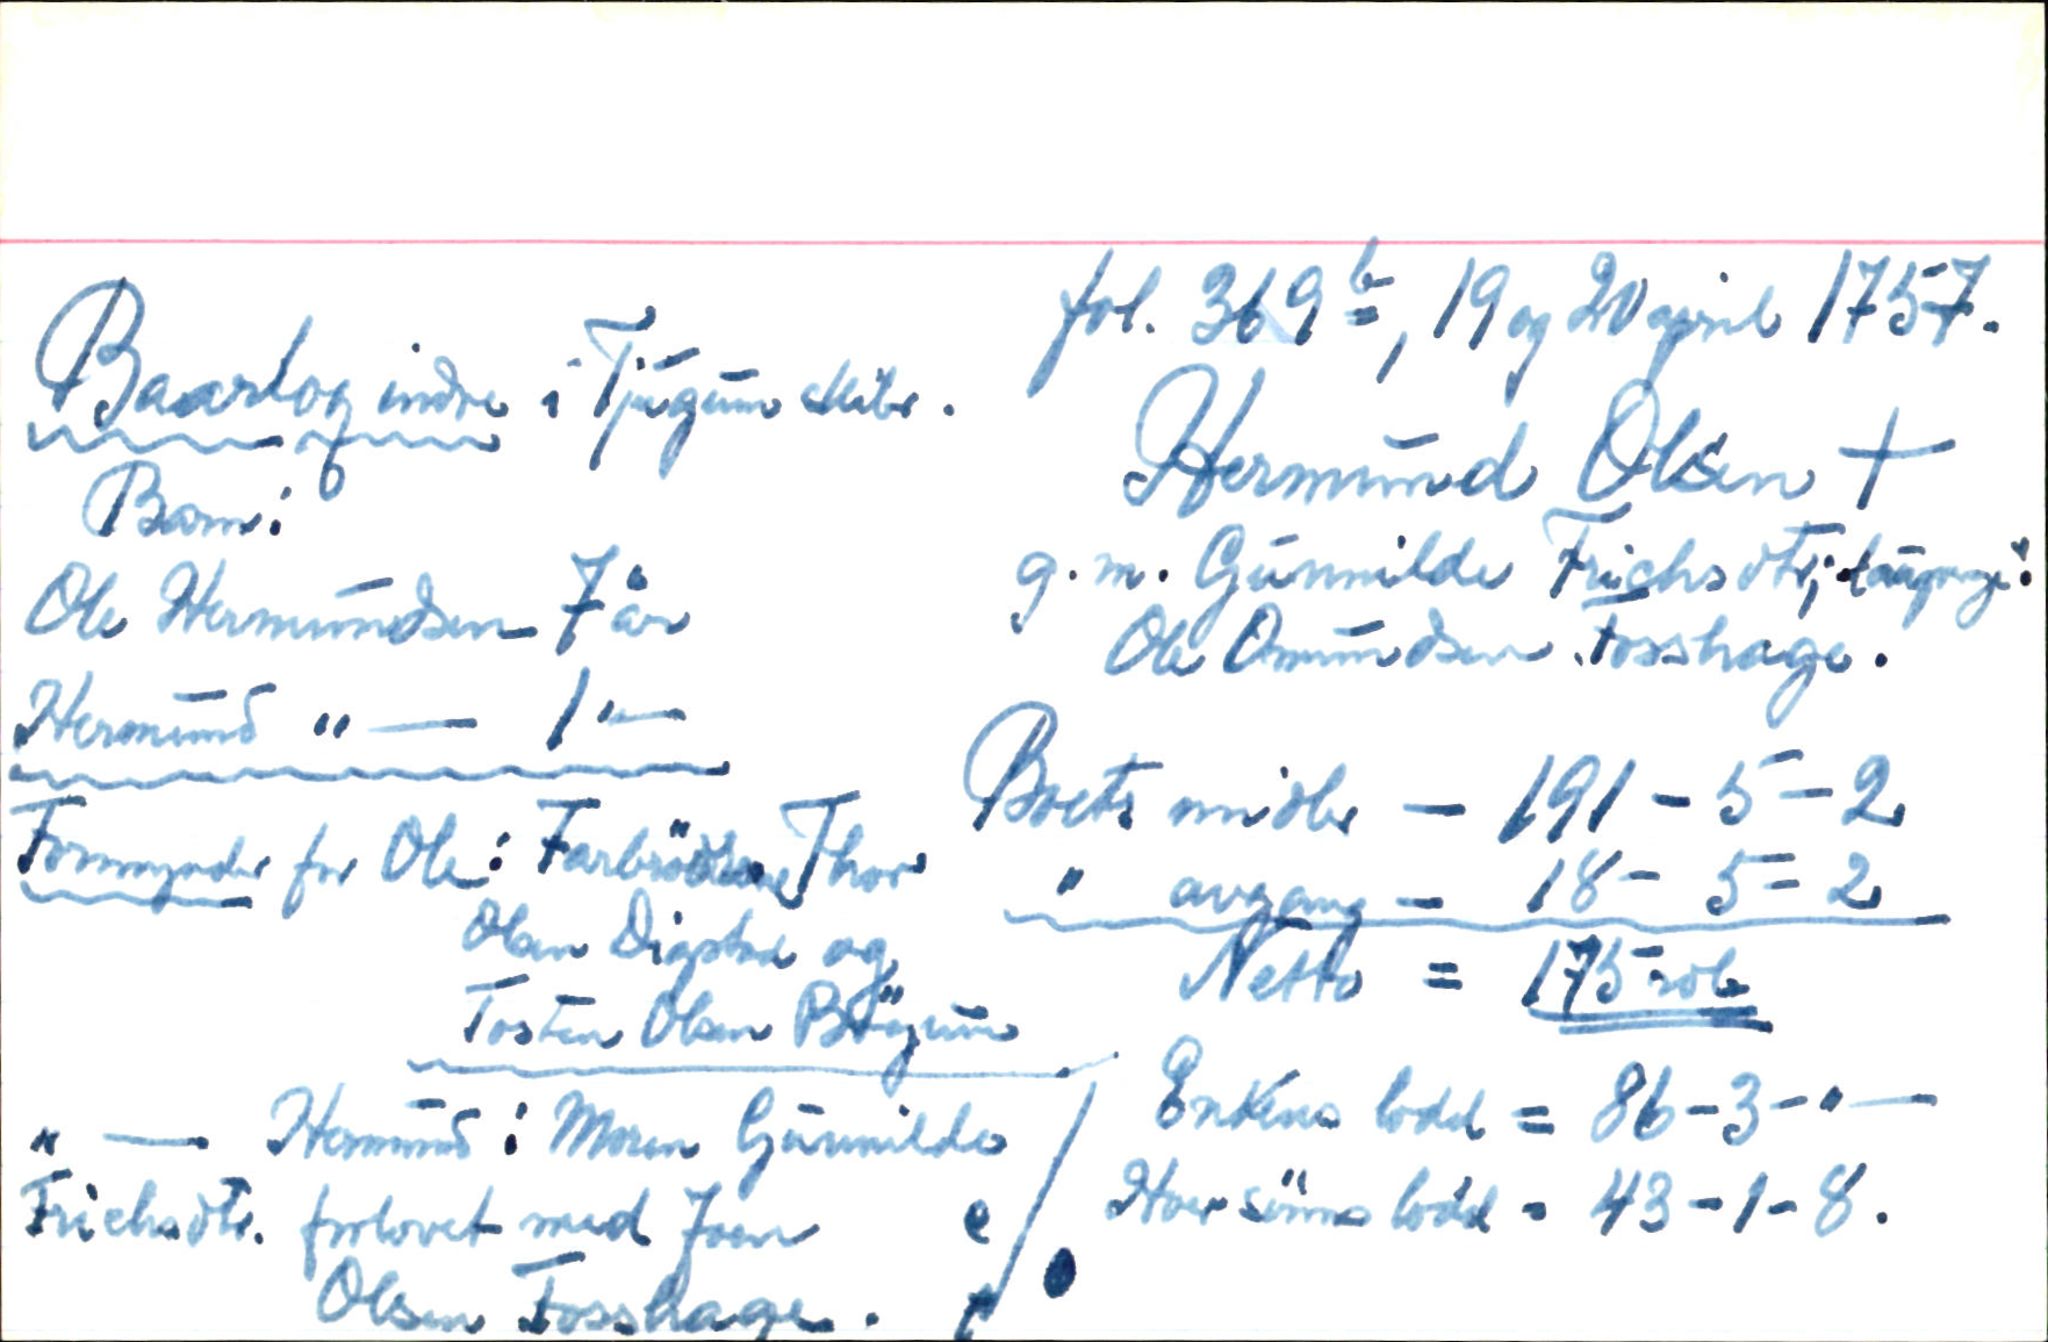 fol. 369 b, 19 og 20 april 1757.
Baarlog indre i Tjugum skibr.
Hermund Olsen +
g. m. Gunnilde Frichsdtr;
Ole Omundsen Fosshage.
Barn:
Ole Hermundsen 7 år
Hermund " — 1 " —
Formynder for Ole: Farbrödrene Thor
Olsen Digstad og
Tosten Olsen Bögum
" — Hermund: Moren Gunnilde
Frichsdtr. forlovet med Joen
Olsen Fosshage.
Boets midler — 191 - 5 - 2
" avgang — 18 - 5 = 2
Netto = 175 rdl
Enkens lodd = 86 - 3 - " —
Hver sönns lodd = 43 - 1 - 8.